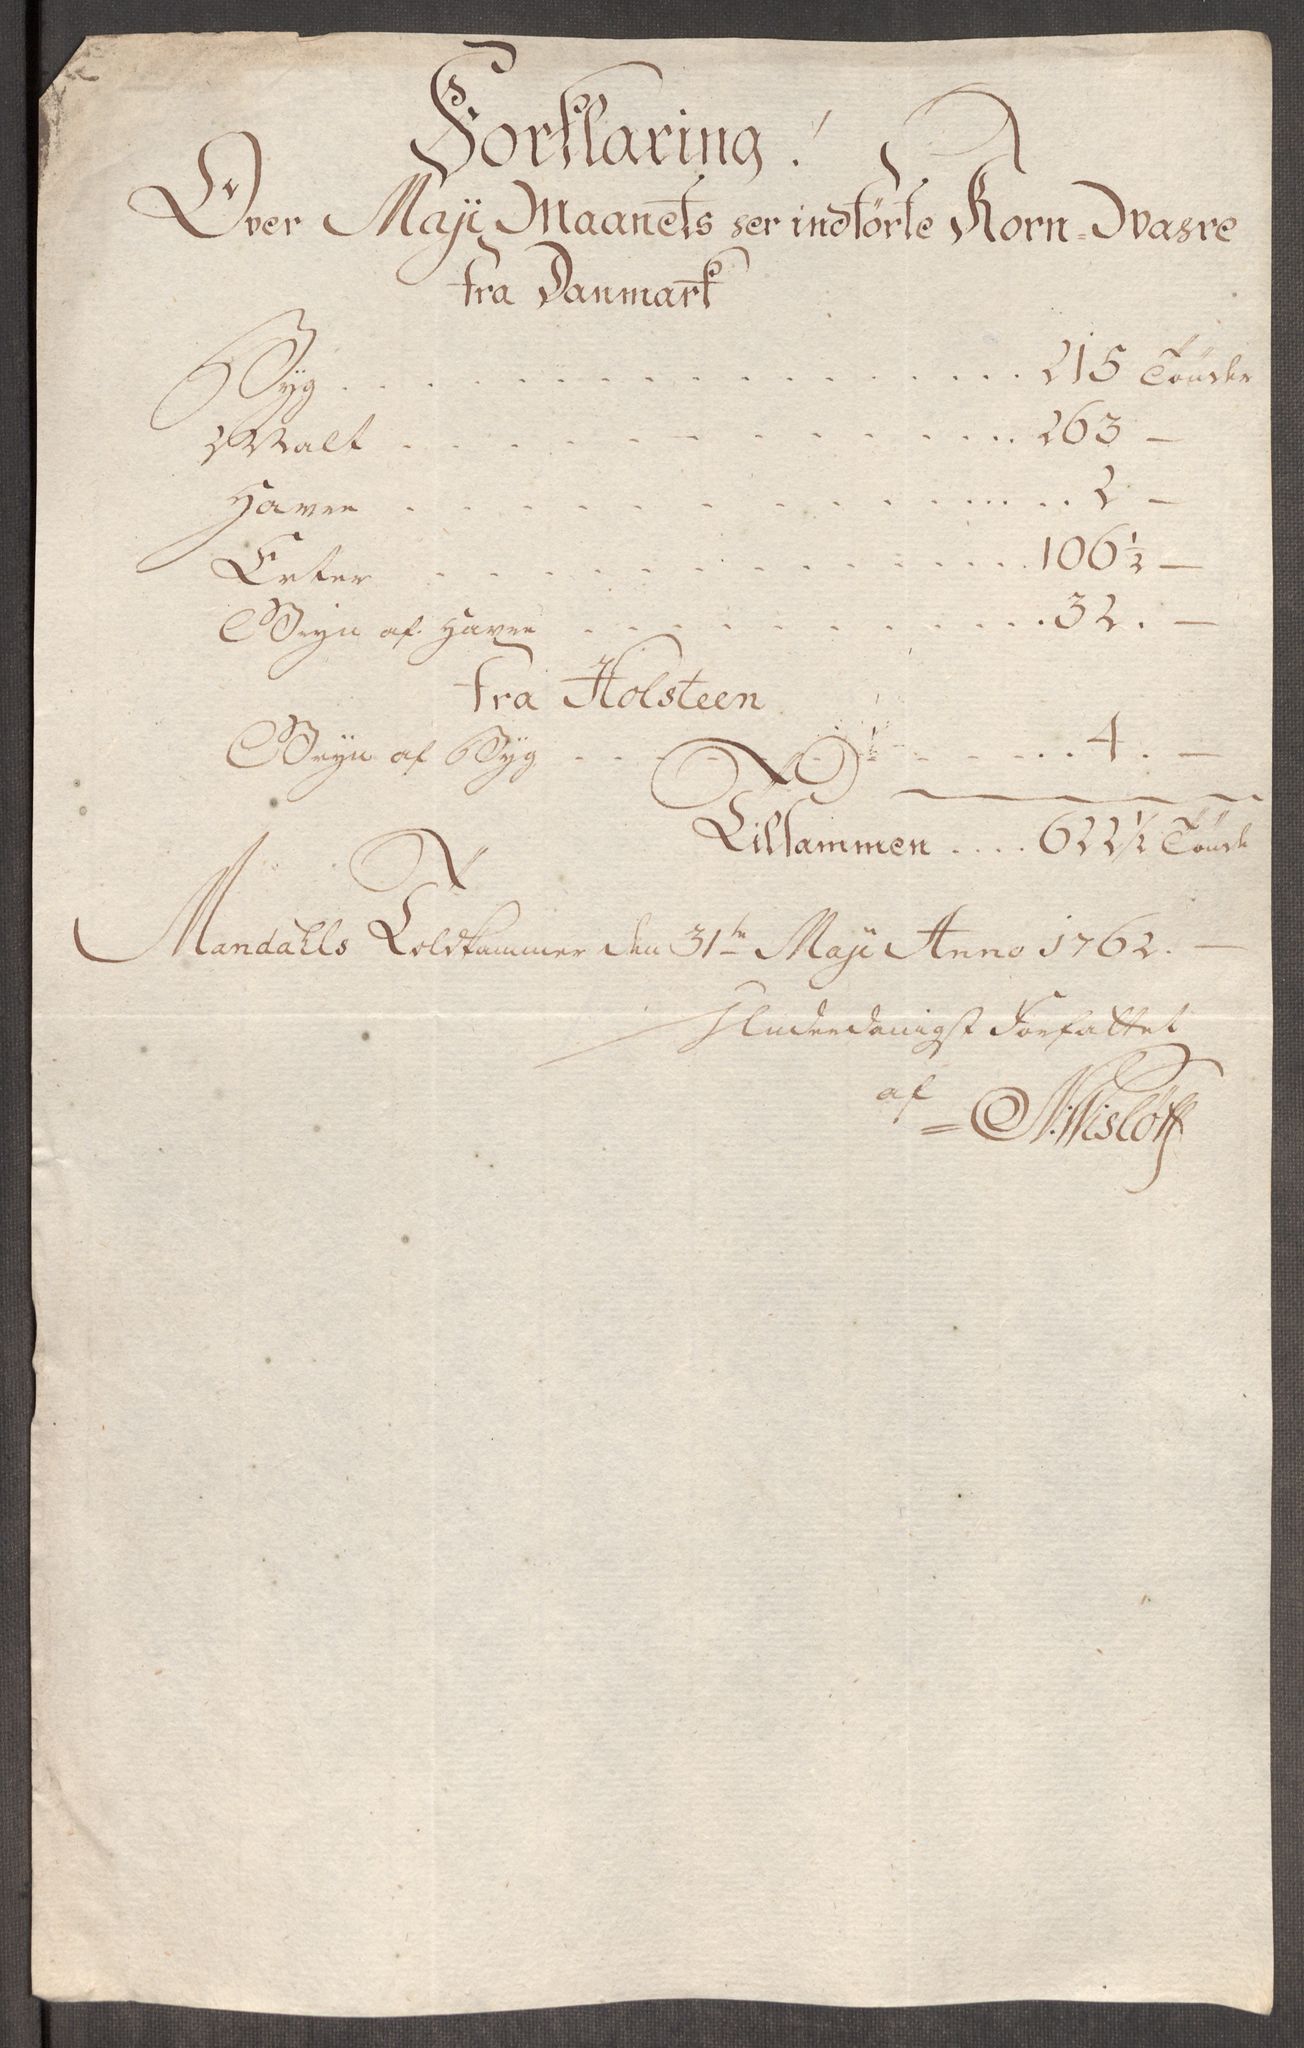 Forklaring!
Over Maji Maanets her indförte Korn-Vahre
fra Danmark
Byg . . . . . . . . . . . . . . . . . . 215 Tönder
Malt . . . . . . . . . . . . . . . 263 —
Havre . . . . . . . . . . . . . . . 2 —
Erter . . . . . . . . . . . . . . . 106 1/2 —
Gryn af Havre . . . . . . . . . . . . 32. —
fra Holsteen
Gryn af Byg . . . . . . . . . . . . 4. —
Tilsammen .... 622 1/2 Tönde
Mandahls Toldkammer den 31te Maji Anno 1762. —
Underdanigst Forfattet
af
= N: Wislöff